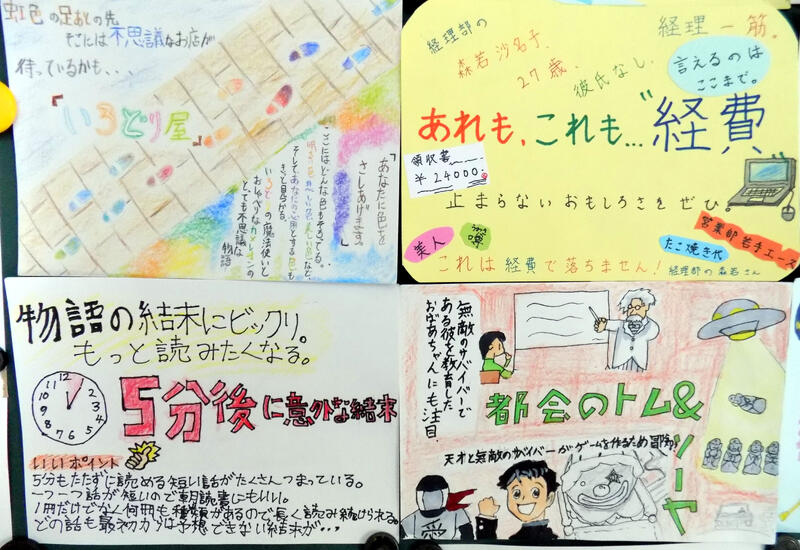 虹色の足あとの先
そこには不思議なお店が
待っているかも、、、
『いろどり屋』
「あなたに色を
さしあげます。」
ここにはどんな色もそろってる。
明るい色、悲しい色、美しい色など、
そしてあなたの必要とする色も
きっと見つかる。
いろどりの魔法使いと
おしゃべりなカメレオンの
とっても不思議な
物語
経理部の
森若沙名子、
27歳、
彼氏なし、
経理一筋。
言えるのは
ここまで。
あれも、これも…"経費"
領収書
¥24000.
止まらないおもしろさをぜひ
美人
噂
営業部若手エース
たこ焼き代
これは経費で落ちません!
経理部の森若さん
物語の結末にビックリ。
もっと読みたくなる。
12
1
2
3
4
5
6
7
8
9
10
11
5分後に意外な結末
いいポイント
5分もたたずに読める短い話がたくさんつまっている。
一つ一つ話が短いので朝読書にもいい。
1冊だけでなく何冊も種類があるので長く読み続けられる。
どの話も最初からは予想できない結末が…
無敵のサバイバーで
ある彼を教育した
おばあちゃんにも注目。
都会のトム&ソーヤ
天才と無敵のサバイバーがゲームを作るため冒険!
愛